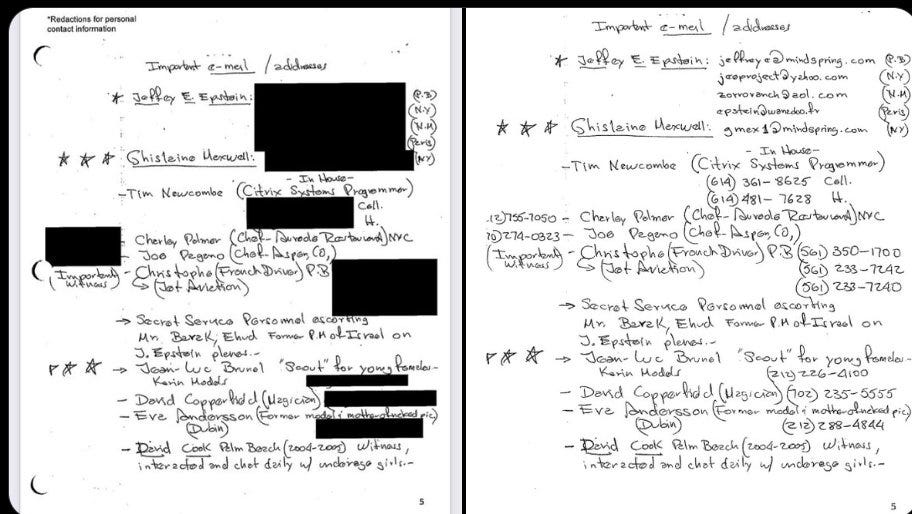 *Redactions for personal
contact information
Important e-mail / addresses
* Jeffrey E. Epstein:
(P.B)
(N.Y)
(N.M)
(Paris)
★ ★ ★ Ghislaine Maxwell: (NY)
- In House -
- Tim Newcombe (Citrix Systems Programmer)
Cell.
H.
- Charley Palmer (Chef- Restaurant) NYC
- Joe Pagano (Chef- Aspen CO,)
(Important Witness) - Christophe (French Driver) P.B
↳ (Jet Aviation)
→ Secret Service Personnel escorting
Mr. Barak, Ehud Former P.M of Israel on
J. Epstein planes.-
★ ★ → Jean-Luc Brunel "Scout" for young females-
Karin Models
- David Copperfield (Magician)
- Eva Andersson (Former model & mother of naked pic)
(Dubin)
- David Cook Palm Beach (2004-2005) Witness,
interacted and chat daily w/ underage girls.-
5
Important e-mail / addresses
* Jeffrey E. Epstein: jeffreye@mindspring.com (P.B)
jeeproject@yahoo.com (N.Y)
zorroranch@aol.com (N.M)
epstein@wanadoo.fr (Paris)
★ ★ ★ Ghislaine Maxwell: gmax1@mindspring.com (NY)
- In House -
- Tim Newcombe (Citrix Systems Programmer)
(614) 361-8625 Cell.
(614) 481-7628 H.
12) 755-7050 - Charley Palmer (Chef- Restaurant) NYC
70) 274-0323 - Joe Pagano (Chef- Aspen CO,)
(Important Witness) - Christophe (French Driver) P.B (561) 350-1700
↳ (Jet Aviation) (561) 233-7242
(561) 233-7240
→ Secret Service Personnel escorting
Mr. Barak, Ehud Former P.M of Israel on
J. Epstein planes.-
★ ★ → Jean-Luc Brunel "Scout" for young females-
Karin Models (212) 226-4100
- David Copperfield (Magician) (702) 235-5555
- Eva Andersson (Former model & mother of naked pic)
(Dubin) (212) 288-4844
- David Cook Palm Beach (2004-2005) Witness,
interacted and chat daily w/ underage girls.-
5